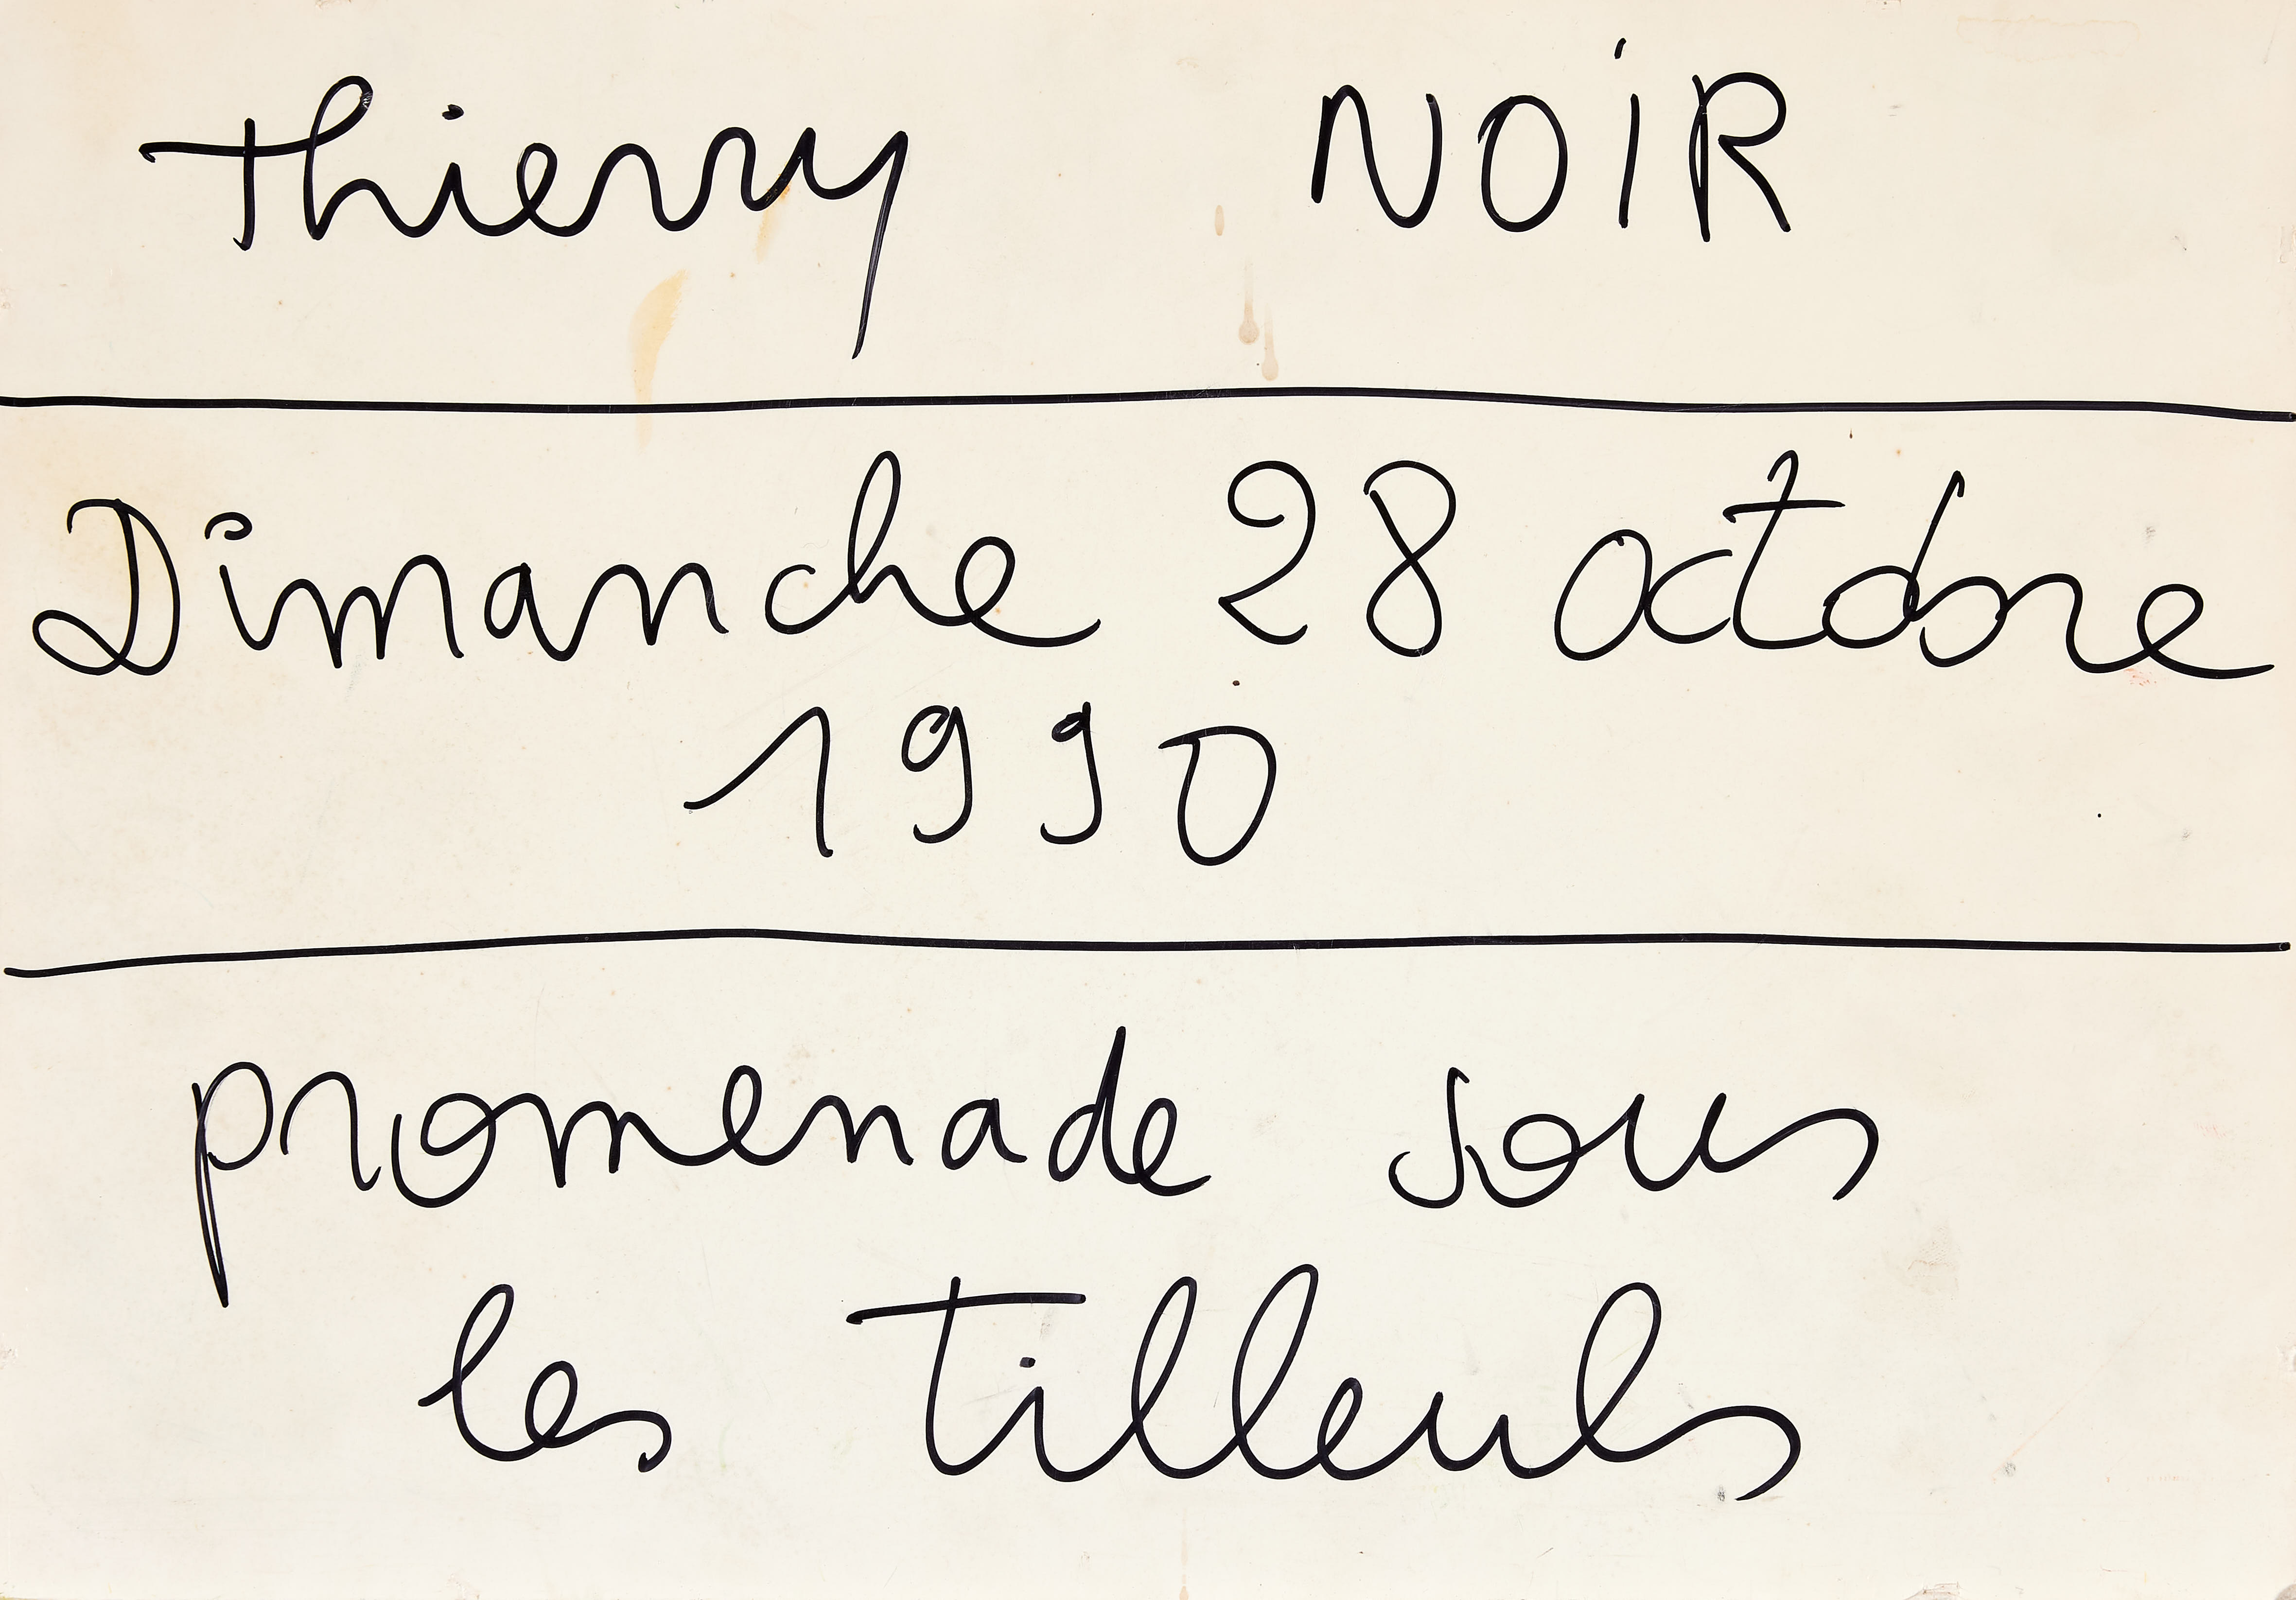 Thierry NOiR
Dimanche 28 octobre
1990
promenade sous
les Tilleuls